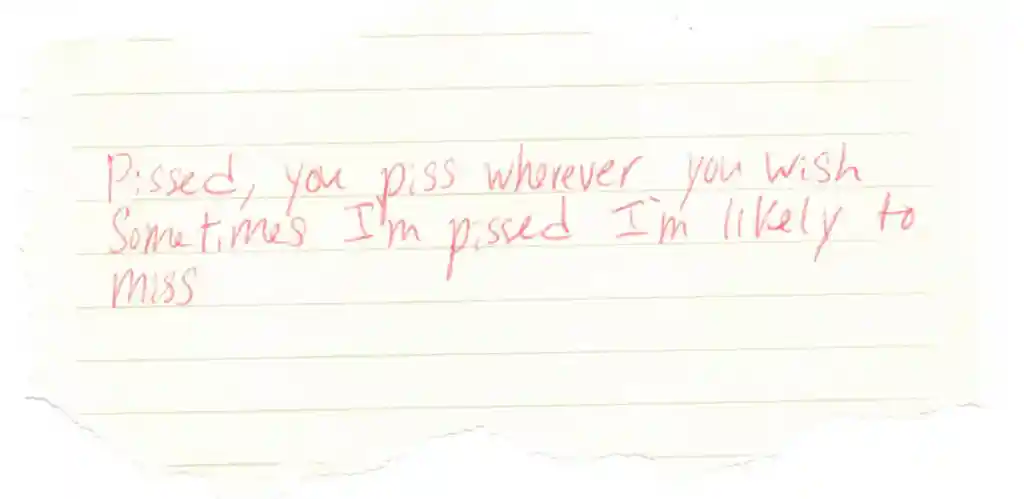 Pissed, you piss wherever you wish
Sometimes I'm pissed I'm likely to
miss